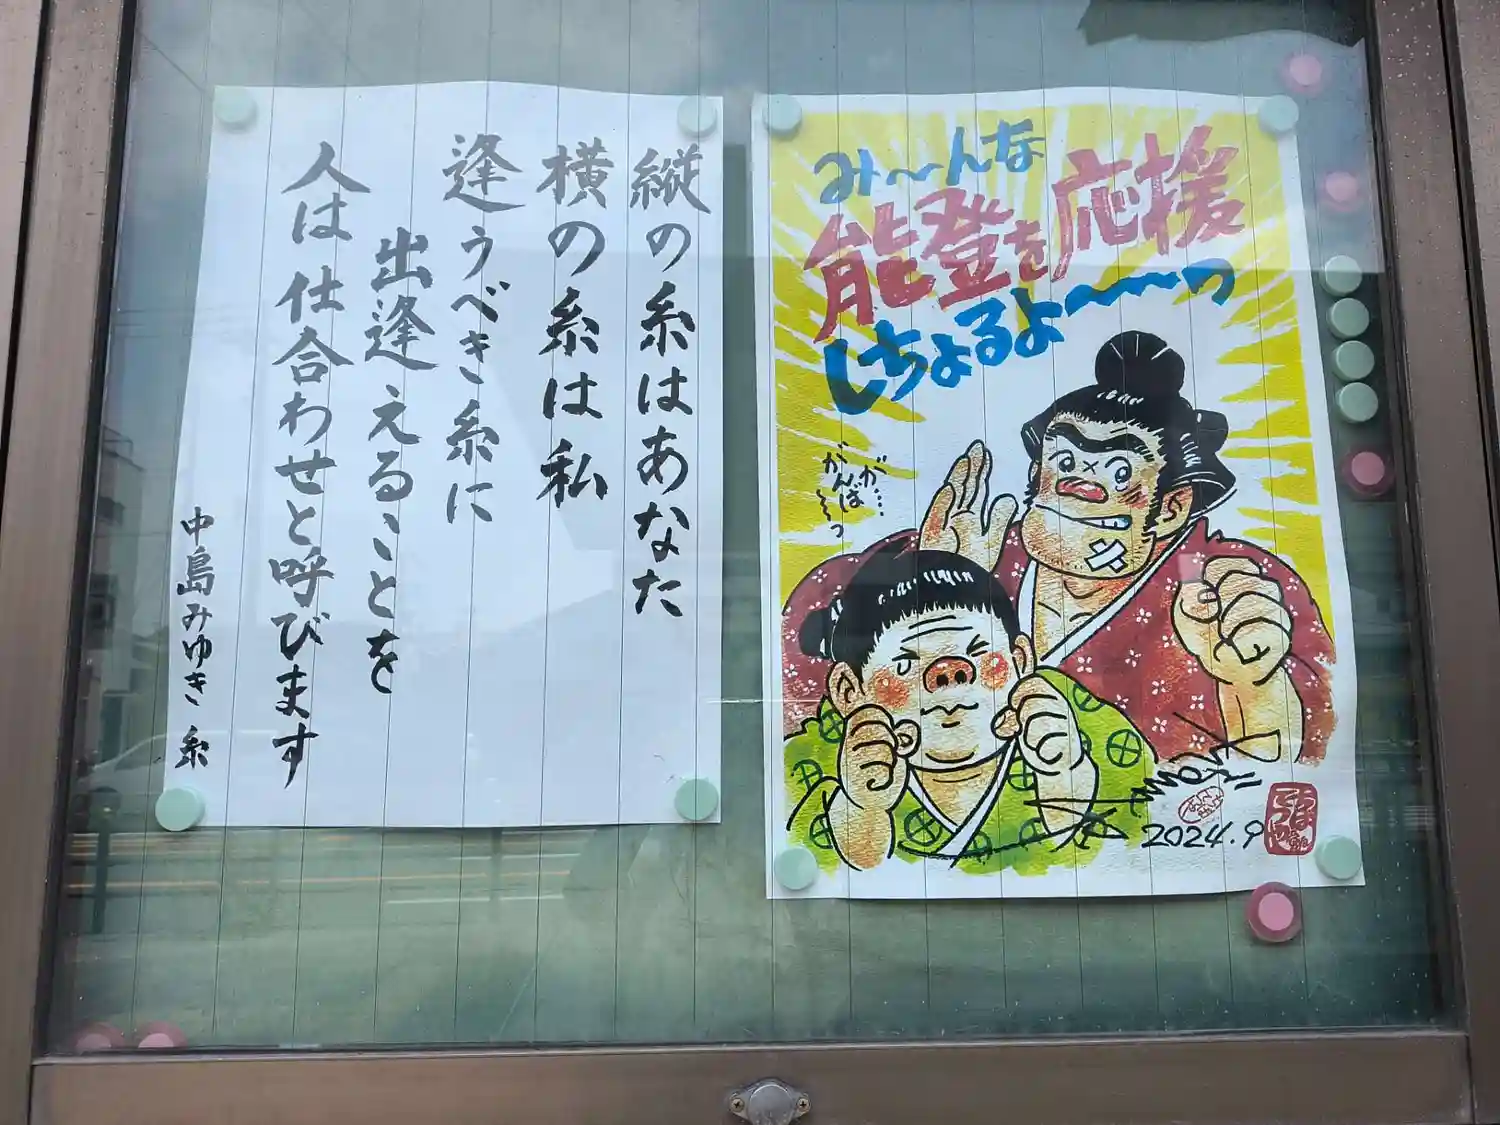 縦の糸はあなた
横の糸は私
逢うべき糸に
出逢えることを
人は仕合わせと呼びます
中島みゆき 糸
み〜んな
能登を応援
しちょるよ〜〜っ
が…
がんば
〜っ
2024.9